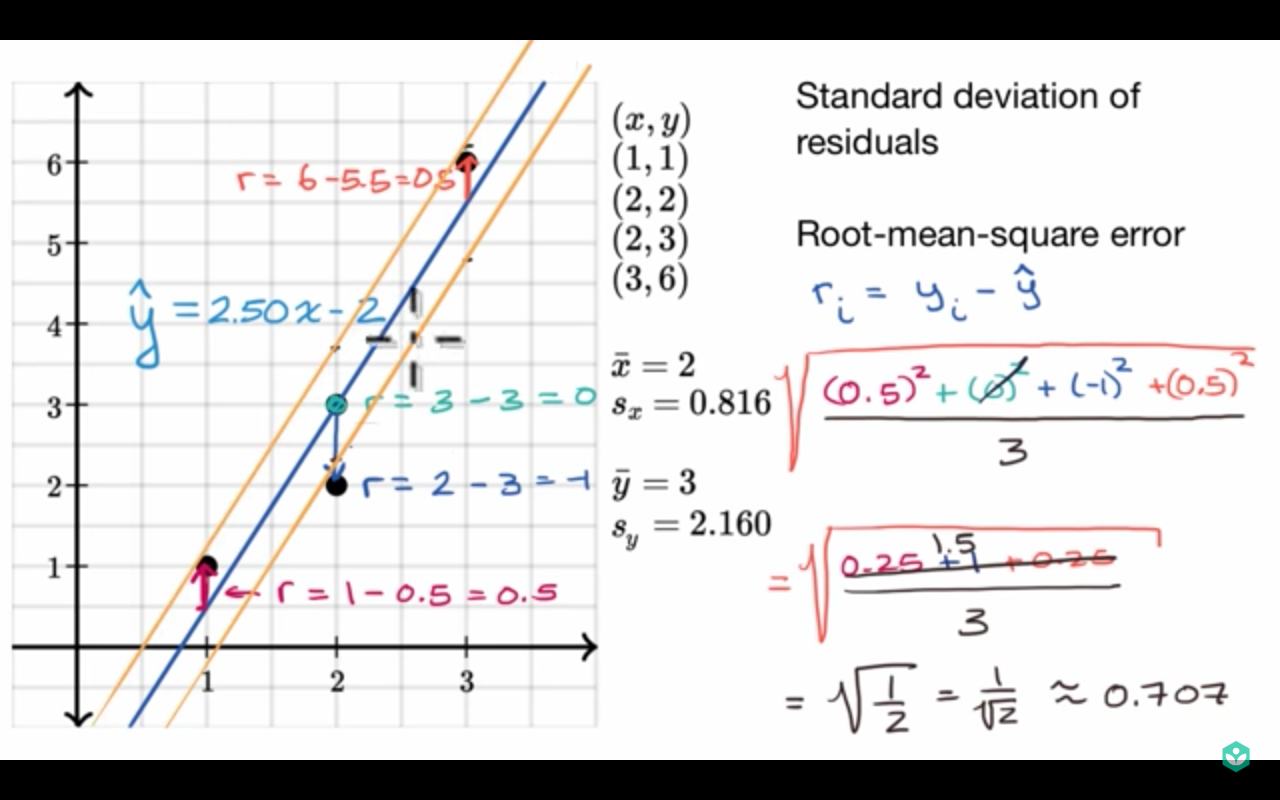 6
5
4
3
2
1
1
2
3
r = 6-5.5=0.5
ŷ = 2.50x - 2
r = 3 - 3 = 0
r = 2 - 3 = -1
← r = 1 - 0.5 = 0.5
(x, y)
(1, 1)
(2, 2)
(2, 3)
(3, 6)
x̄ = 2
sₓ = 0.816
ȳ = 3
s_y = 2.160
Standard deviation of
residuals
Root-mean-square error
rᵢ = yᵢ - ŷ
√((0.5)² + (0)² + (-1)² + (0.5)²
3
1.5
= √(0.25 + 1 + 0.25
3
= √(1/2) = 1/√2 ≈ 0.707